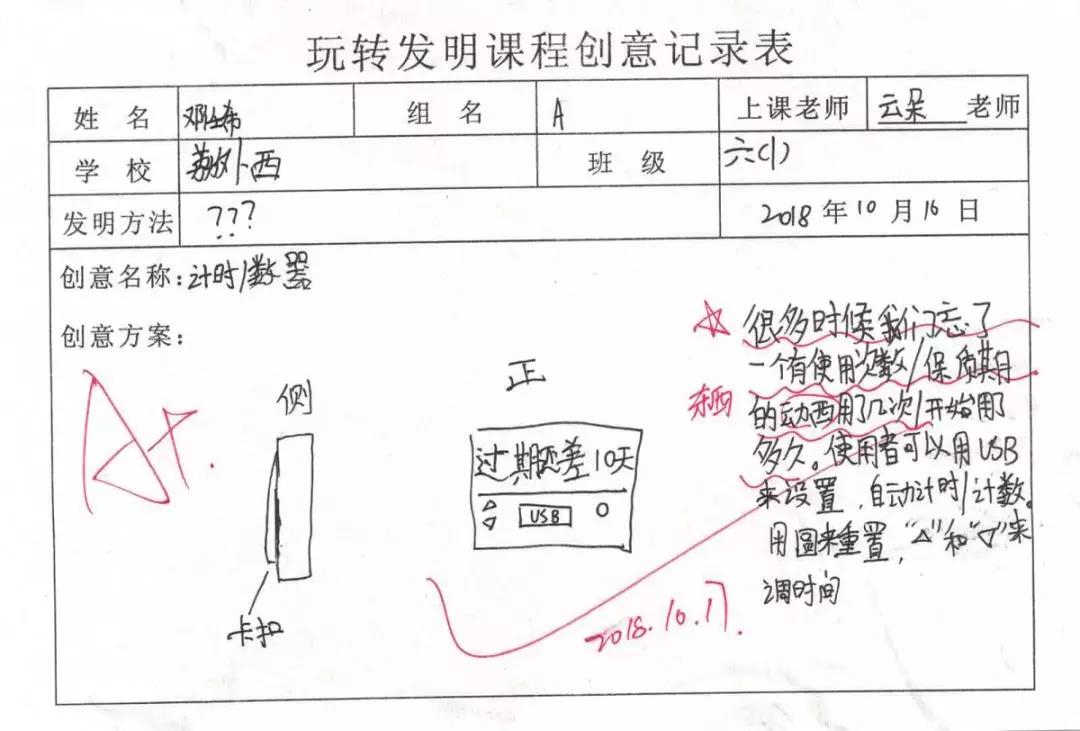 玩转发明课程创意记录表
姓 名 邓 组 名 A 上课老师 云朵 老师
学 校 外西 班 级 六(1)
发明方法 ??? 2018 年 10 月 16 日
创意名称:计时/数器
创意方案:
A+.
侧
卡扣
正
过期还差10天
△ ▽ USB O
☆ 很多时候我们忘了
一个有使用次数/保质期
东西 的动西用了几次/开始用了
多久。使用者可以用USB
来设置,自动计时/计数。
用圆来重置,"△"和"▽"来
调时间
2018.10.17.